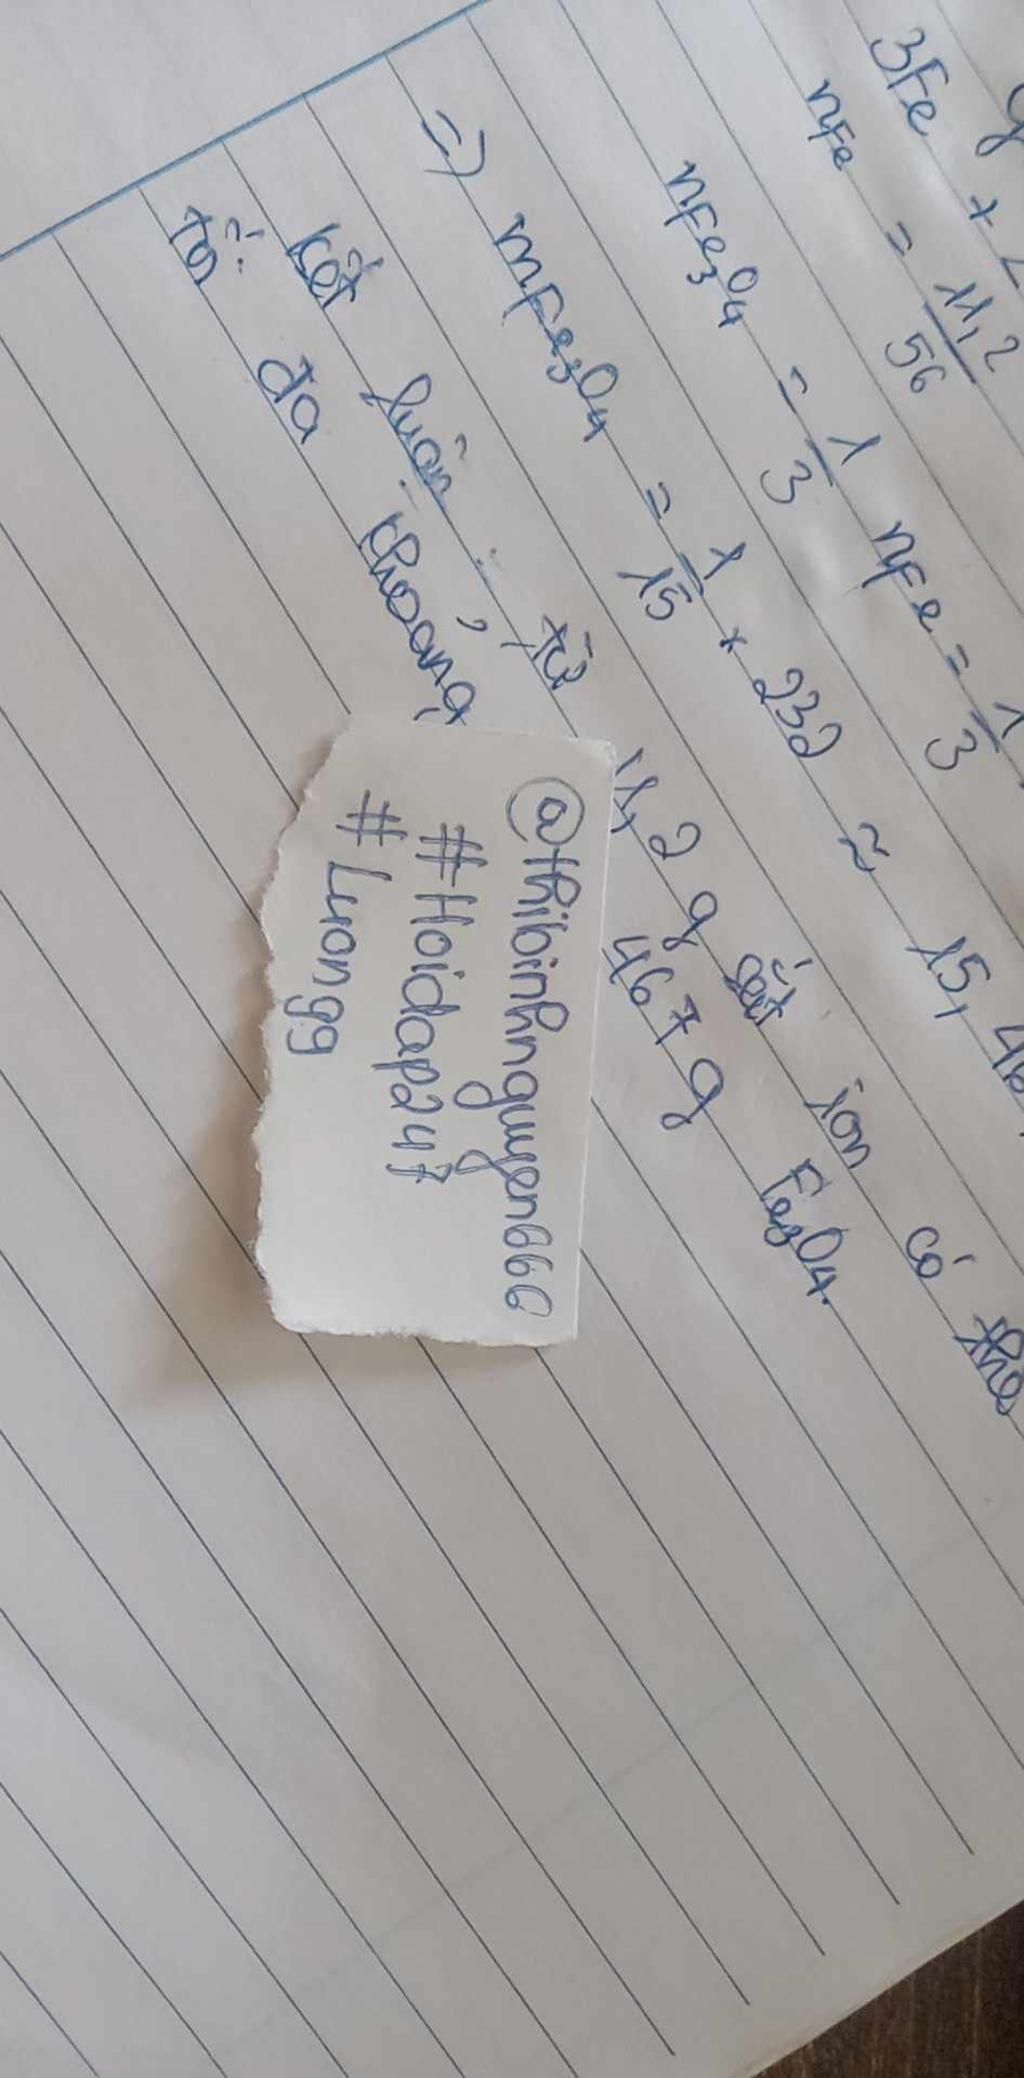 3Fe +
nFe = 11,2/56
nFe3O4 = 1/3 nFe = 1/3
=) mFe3O4 = 1/15 x 232 ≈ 15,46
Kết luận: từ 11,2 g sắt ion có thể
tối đa khoảng 467 g Fe3O4.
@thibinhnguyen6660
#Hoidap247
#Luongg